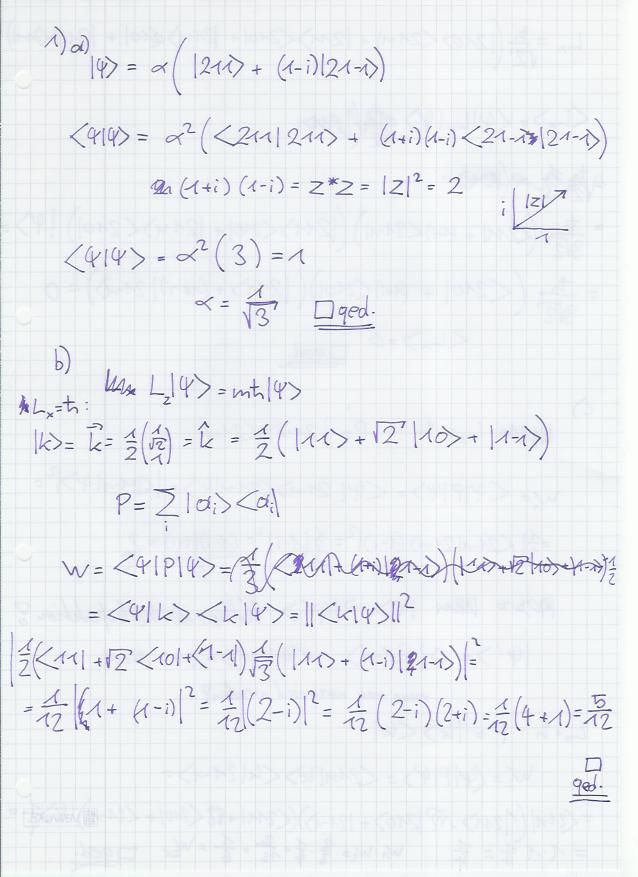 1) a)
|ψ> = α ( |211> + (1-i)|21-1>)
<ψ|ψ> = α² (<211|211> + (1+i)(1-i) <21-1|21-1>)
(1+i)(1-i) = z*z = |z|² = 2
i |z| 1
<ψ|ψ> = α² (3) = 1
α = 1/√3 □ qed.
b)
L_z|ψ> = mħ|ψ>
L_x = ħ:
|k> = k⃗ = 1/2 (1 √2 1) = k̂ = 1/2 (|11> + √2 |10> + |1-1>)
P = Σ_i |α_i> <α_i|
W = <ψ|P|ψ> =
= <ψ|k> <k|ψ> = ||<k|ψ>||²
|1/2 (<11| + √2 <10| + <1-1|) 1/√3 (|11> + (1-i)|1-1>)|² =
= 1/12 |1 + (1-i)|² = 1/12 |(2-i)|² = 1/12 (2-i)(2+i) = 1/12 (4+1) = 5/12
□
qed.